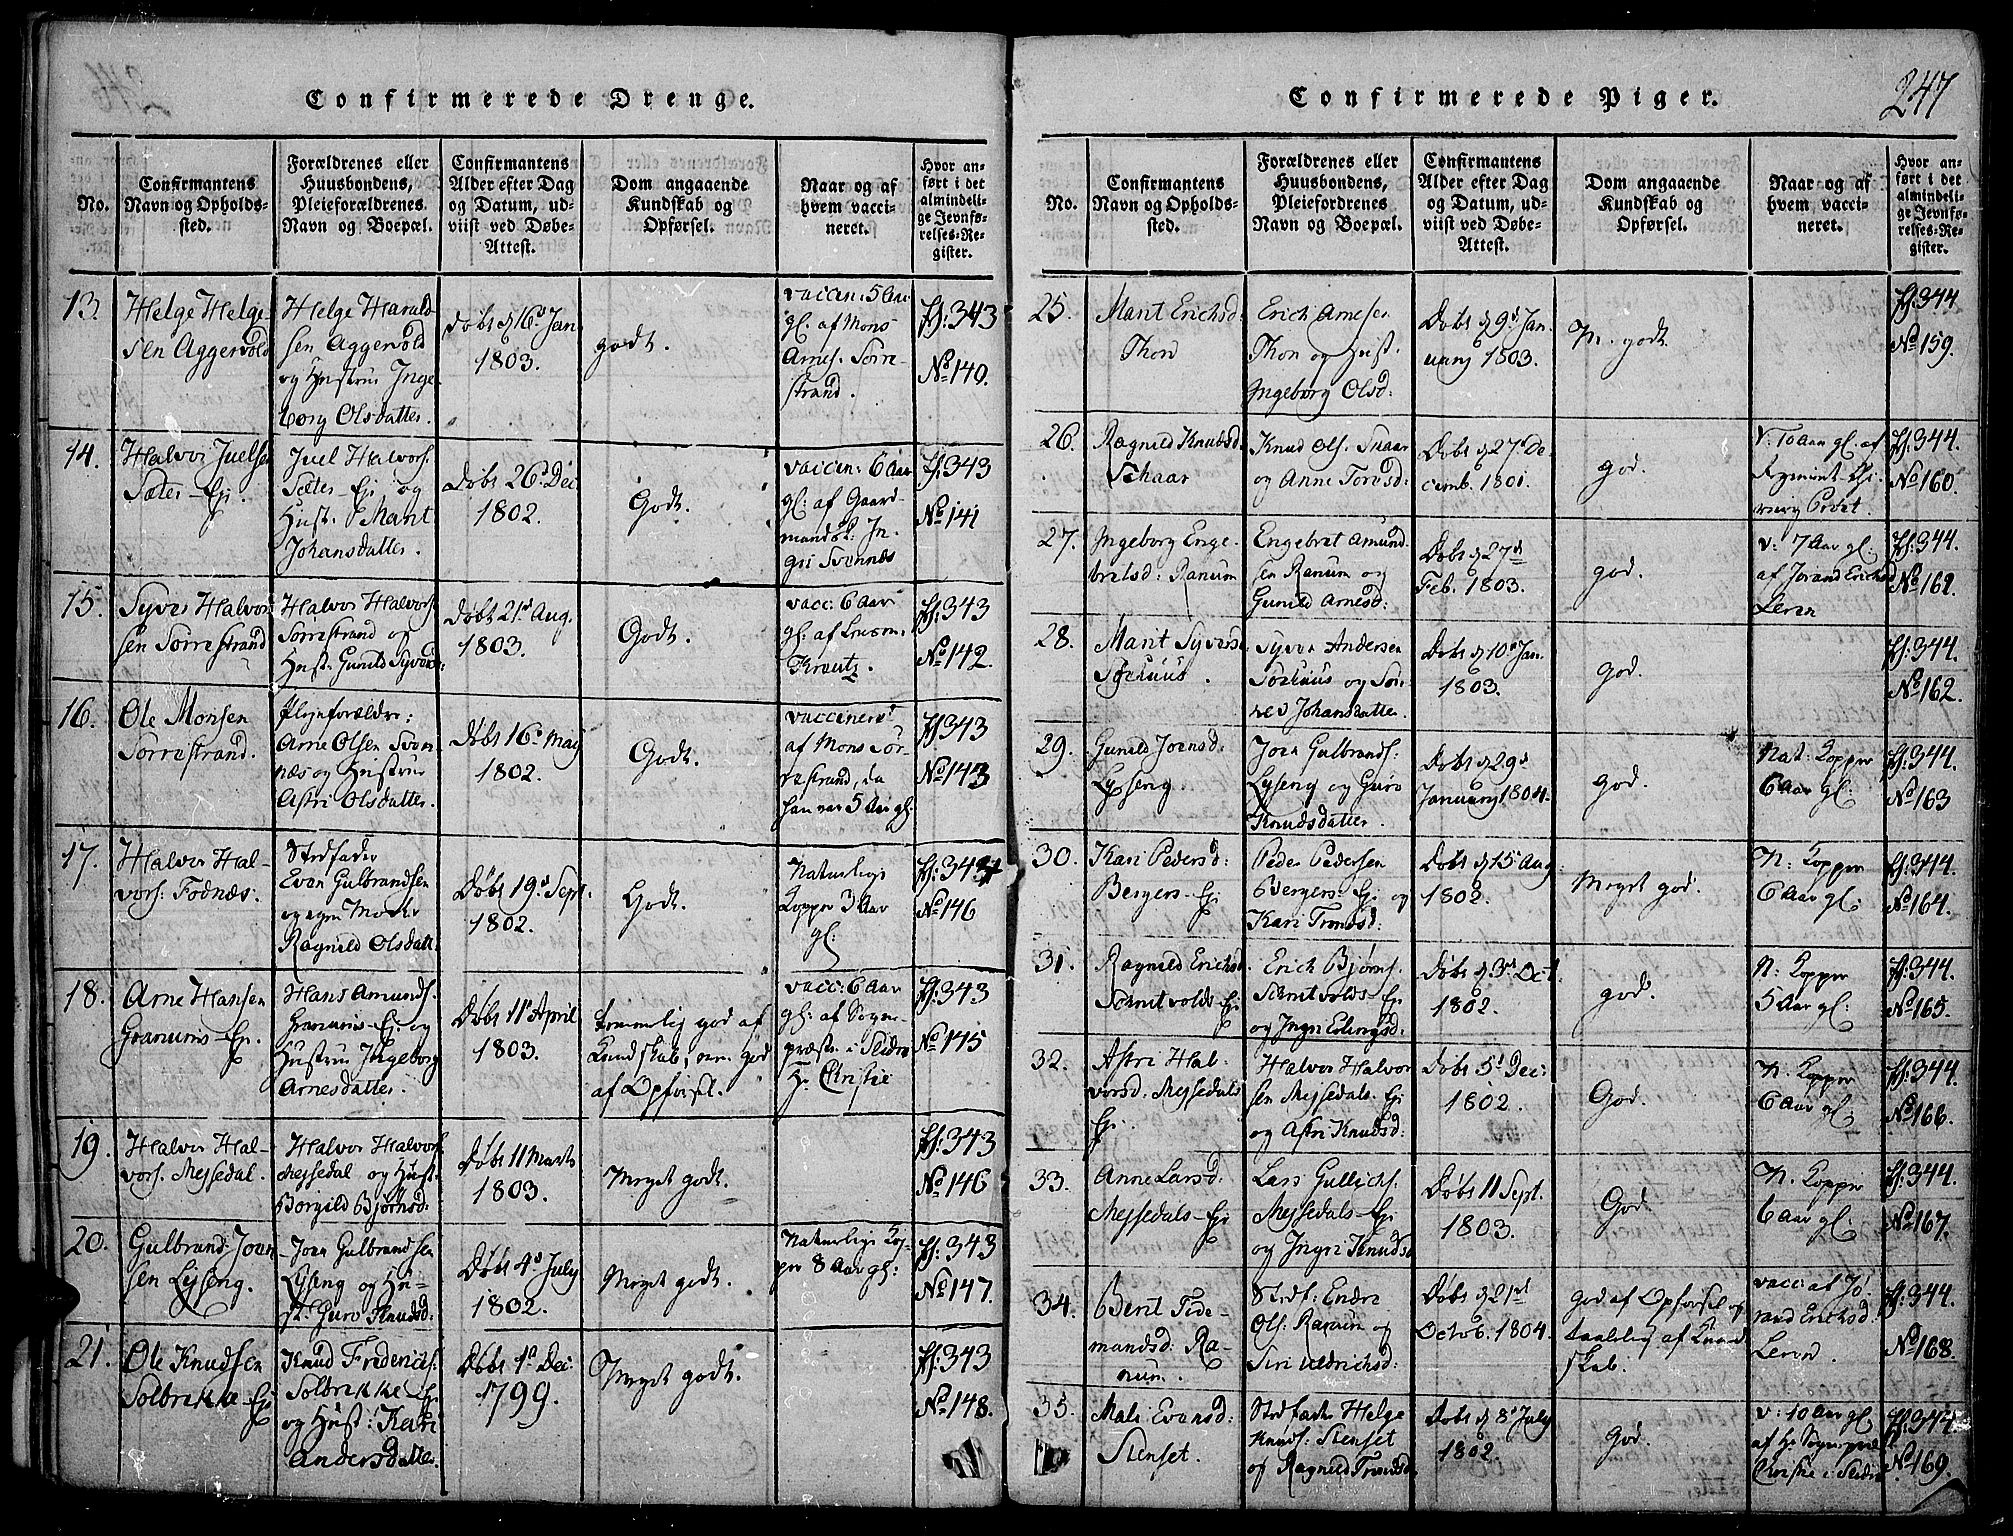 Confirmerede Drenge.
No.
Confirmantens
Navn og Opholds-
sted.
Forældrenes eller
Huusbondens,
Pleieforældrenes
Navn og Boepæl.
Confirmantens
Alder efter Dag
og Datum, ud-
viist ved Døbe-
Attest.
Dom angaaende
Kundskab og
Opførsel.
Naar og af
hvem vacci-
neret.
Hvor an-
ført i det
almindeli-
ge Jevnfø-
relses-Re-
gister.
13.
Helge Helge-
sen Aggervold
Helge Harald-
sen Aggervold
og Hustrue Inge
borg Olsdatter.
Døbt d 16d Jan
1803.
godt.
vaccin: 5 Aar
gl. af Mons
Arnes. Sørre-
strand.
343
No 140.
14.
Halvor Juelsen
Sæter-Ej.
Juel Halvors.
Sæter-Ej og
Hust. Marit
Johansdatter.
Døbt 26d Dec
1802.
Godt.
vaccin: 6 Aar
gl: af Gaard-
mandsk: In-
gri Svennæs
343
No 141
15.
Syver Halvor-
sen Sørrestrand
Halvor Halvors.
Sørrestrand og
Hust. Gunild Syversd:
Døbt 21d Aug.
1803.
Godt.
vacc: 6 Aar
gl: af
Krautz.
343
No 142.
16.
Ole Monsen
Sørrestrand.
Plejeforældre:
Arne Olsen Sven-
næs og Hustrue
Astri Olsdatter.
Døbt 16d May
1802.
Godt.
vaccineret
af Mons Sør-
restrand, da
han var 5 Aar gl:
343
No 143
17.
Halvor Hal-
vors. Fodnæs.
Stedfader
Even Gulbrandsen
og egen Moder
Ragnild Olsdatt.
Døbt 19d Sept.
1802.
Godt.
Naturlige
Kopper 3 Aar
gl.
No 146
18.
Arne Hansen
Granums-Ej.
Hans Amunds.
Granums-Ej og
Hustrue Ingeborg
Arnesdatter.
Døbt 11d April
1803.
temmelig god af
Kundskab, men god
af Opførsel.
vacc: 6 Aar
gl: af Sogne-
præsten i Slidre
Hr. Christie
343
No 145
19.
Halvor Hal-
vors. Mejsedal.
Halvor Halvors.
Mejsedal og Hust.
Borgild Bjørnsd:
Døbt 11 Marts
1803.
Meget godt.
343
No 146
20.
Gulbrand Joen
sen Lyseng.
Joen Gulbrandsen
Lyseng og Hu-
st. Guro Knudsd:
Døbt 4d July
1802.
Meget godt.
Naturlige Kop-
per 8 Aar gl:
343
No 147.
21.
Ole Knudsen
Solbrekke-Ej
Knud Fredericks.
Solbrekke Ej
og Hust: Kari
Andersdatter.
Døbt 1d Dec:
1799.
Meget godt.
343
No 148.
Confirmerede Piger.
247
No.
Confirmantens
Navn og Opholds-
sted.
Forældrenes eller
Huusbondens,
Pleiefordrenes
Navn og Boepæl.
Confirmantens
Alder efter Dag
og Datum, ud-
viist ved Døbe-
Attest.
Dom angaaende
Kundskab og
Opførsel.
Naar og af
hvem vacci-
neret.
Hvor an-
ført i det
almindeli-
ge Jevnfø-
relses-Re-
gister.
25.
Marit Erichsd
Thon
Erich Arnesen
Thon og Hust.
Ingeborg Olsd:
Døbt d 9d Jan-
uary 1803.
M. godt
344
No 159.
26.
Ragnild Knudsd.
Schaar
Knud Ols. Skaar
og Anne Toresd:
Døbt d 27d De-
cemb. 1801.
god.
V: 10 Aar gl. af
344.
No 160.
27.
Ingeborg Enge-
bretsd: Ranum
Engebret Amund
sen Ranum og
Gunild Arnesd:
Døbt d 27d
Feb. 1803.
god.
v: 7 Aar gl:
af Jorand Erichsd
Leren
344.
No 161.
28.
Marit Syversd
Sørhuus.
Syver Andersen
Sørhuus og Sør-
red Johansdatter.
Døbt d 10d Jan.
1803.
god.
344.
No 162.
29.
Gunild Joensd.
Lyseng.
Joen Gulbrands.
Lyseng og Guro
Knudsdatter.
Døbt d 29d
January 1804.
god.
Nat: Kopper
6 Aar gl.
344.
No 163
30.
Kari Pedersd:
Bergers-Ej
Peder Pedersen
Bergers-Ej og
Kari Trondsd:
Døbt d 15 Aug
1802.
Meget god.
N: Kopper
6 Aar gl.
344.
No 164.
31.
Ragnild Erichsd.
Schrutvolds-Ej
Erich Bjørns.
Schrutvolds-Ej
og Ingri Erlingsd:
Døbt d 3d Oct.
1802.
god.
N: Kopper
5 Aar gl:
344.
No 165.
32.
Astri Hal-
vorsd. Mejsedals
Ej.
Halvor Halvor
sen Mejsedals-Ej
og Astri Knudsd:
Døbt 5d Dec:
1802.
God.
N. Kopper
6 Aar gl:
344.
No 166.
33.
Anne Larsd:
Mejsedals-Ej
Lars Gullichs.
Mejsedals-Ej
og Ingri Knudsd
Døbt 11 Sept.
1803.
God.
N. Kopper
6 Aar gl:
344.
No 167.
34.
Berit Tide-
mandsd: Ra-
num.
Stedf: Endre
Ols: Ranum og
Siri Uldrichsd:
Døbt d 21d
Octob. 1804.
god af Opførsel og
taalelig af Kund-
skab.
vacc: af Jo-
rand Erichsd
Leren.
344.
No 168.
35.
Mali Evensd:
Stenset.
Stedfader Helge
Knuds: Stenset
og Ragnild Trondsd.
Døbt d 8d July
1802.
God.
v: 10 Aar gl.
af Hr Sognepræst
Christie i Slidre
344.
No 169.